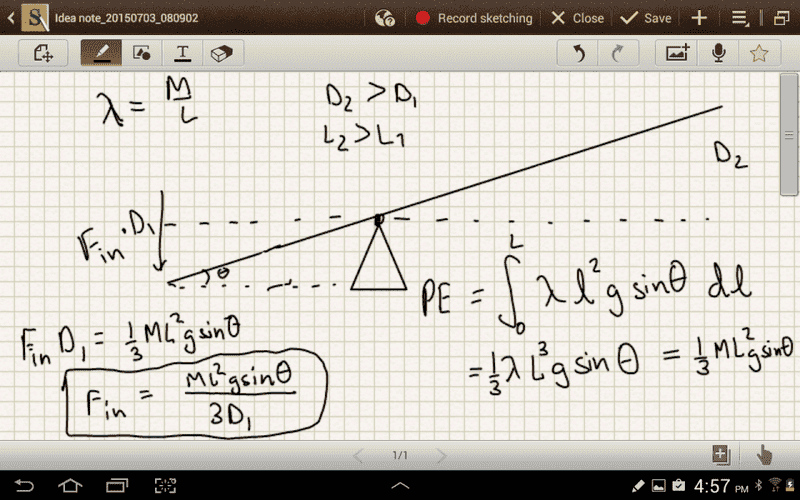 Idea note_20150703_080902
Record sketching
Close
Save
T
λ = M/L
D₂ > D₁
L₂ > L₁
D₂
F_in · D₁
θ
PE = ∫₀ᴸ λ l² g sinθ dl
= 1/3 λ L³ g sin θ = 1/3 ML² g sinθ
F_in D₁ = 1/3 ML² g sinθ
F_in = ML² g sinθ / 3D₁
1/1
4:57 PM